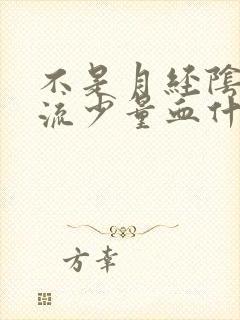 不是月经陰
流少量血什
方幸